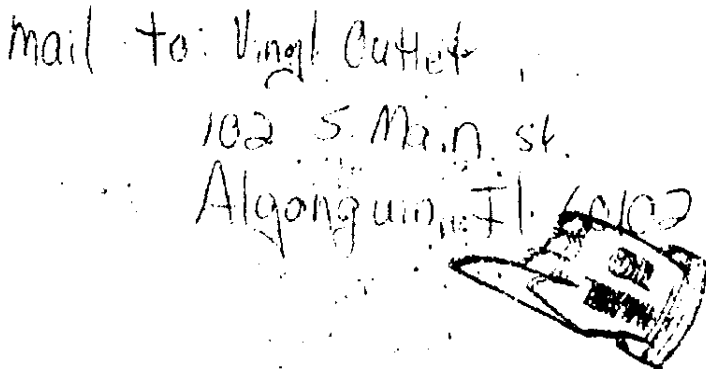 mail to: Vinyl Outlet
102 S. Main St.
Algonquin, Il. 60102